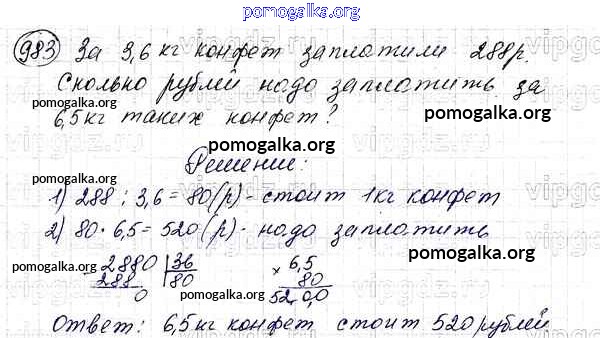 pomogalka.org
983 За 3,6 кг конфет заплатили 288р.
Сколько рублей надо заплатить за
pomogalka.org
6,5 кг таких конфет?
pomogalka.org
pomogalka.org
Решение:
pomogalka.org
1) 288 : 3,6 = 80 (р) - стоит 1 кг конфет
pomogalka.org
2) 80 · 6,5 = 520 (р) - надо заплатить
pomogalka.org
2880 36 6,5
pomogalka.org
288 80 × 80
pomogalka.org
0 520,0
Ответ: 6,5 кг конфет стоит 520 рублей
pomogalka.org